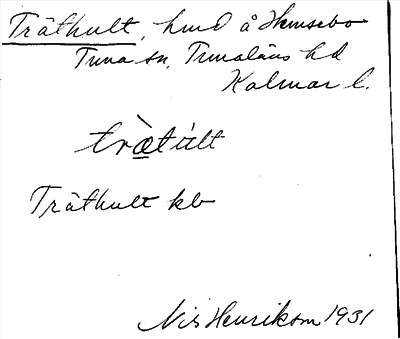 Träthult, hmd å Hemsebo
Tuna sn, Tunaläns hd
Kalmar l.
trætúlt
Träthult kb
Nils Henrikson 1931